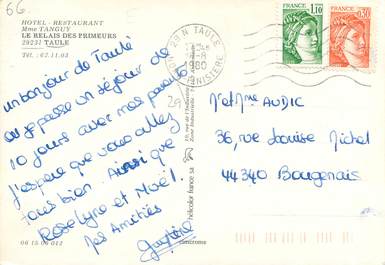 66
HOTEL - RESTAURANT
Mme TANGUY
LE RELAIS DES PRIMEURS
29231 TAULE
Tél. : 67.11.03
un bonjour de Taulé
où je passe un séjour de
10 jours avec mes parents
J'espère que vous allez
tous bien Ainsi que
Roselyne et Noël.
Mes Amitiés
29 N TAULE
1980
FINISTERE
1,10
0,50
29
Mr et Mme AUDIC
36, rue Louise Michel
44340 Bouguenais
helicolor france sa
06 15 06 012